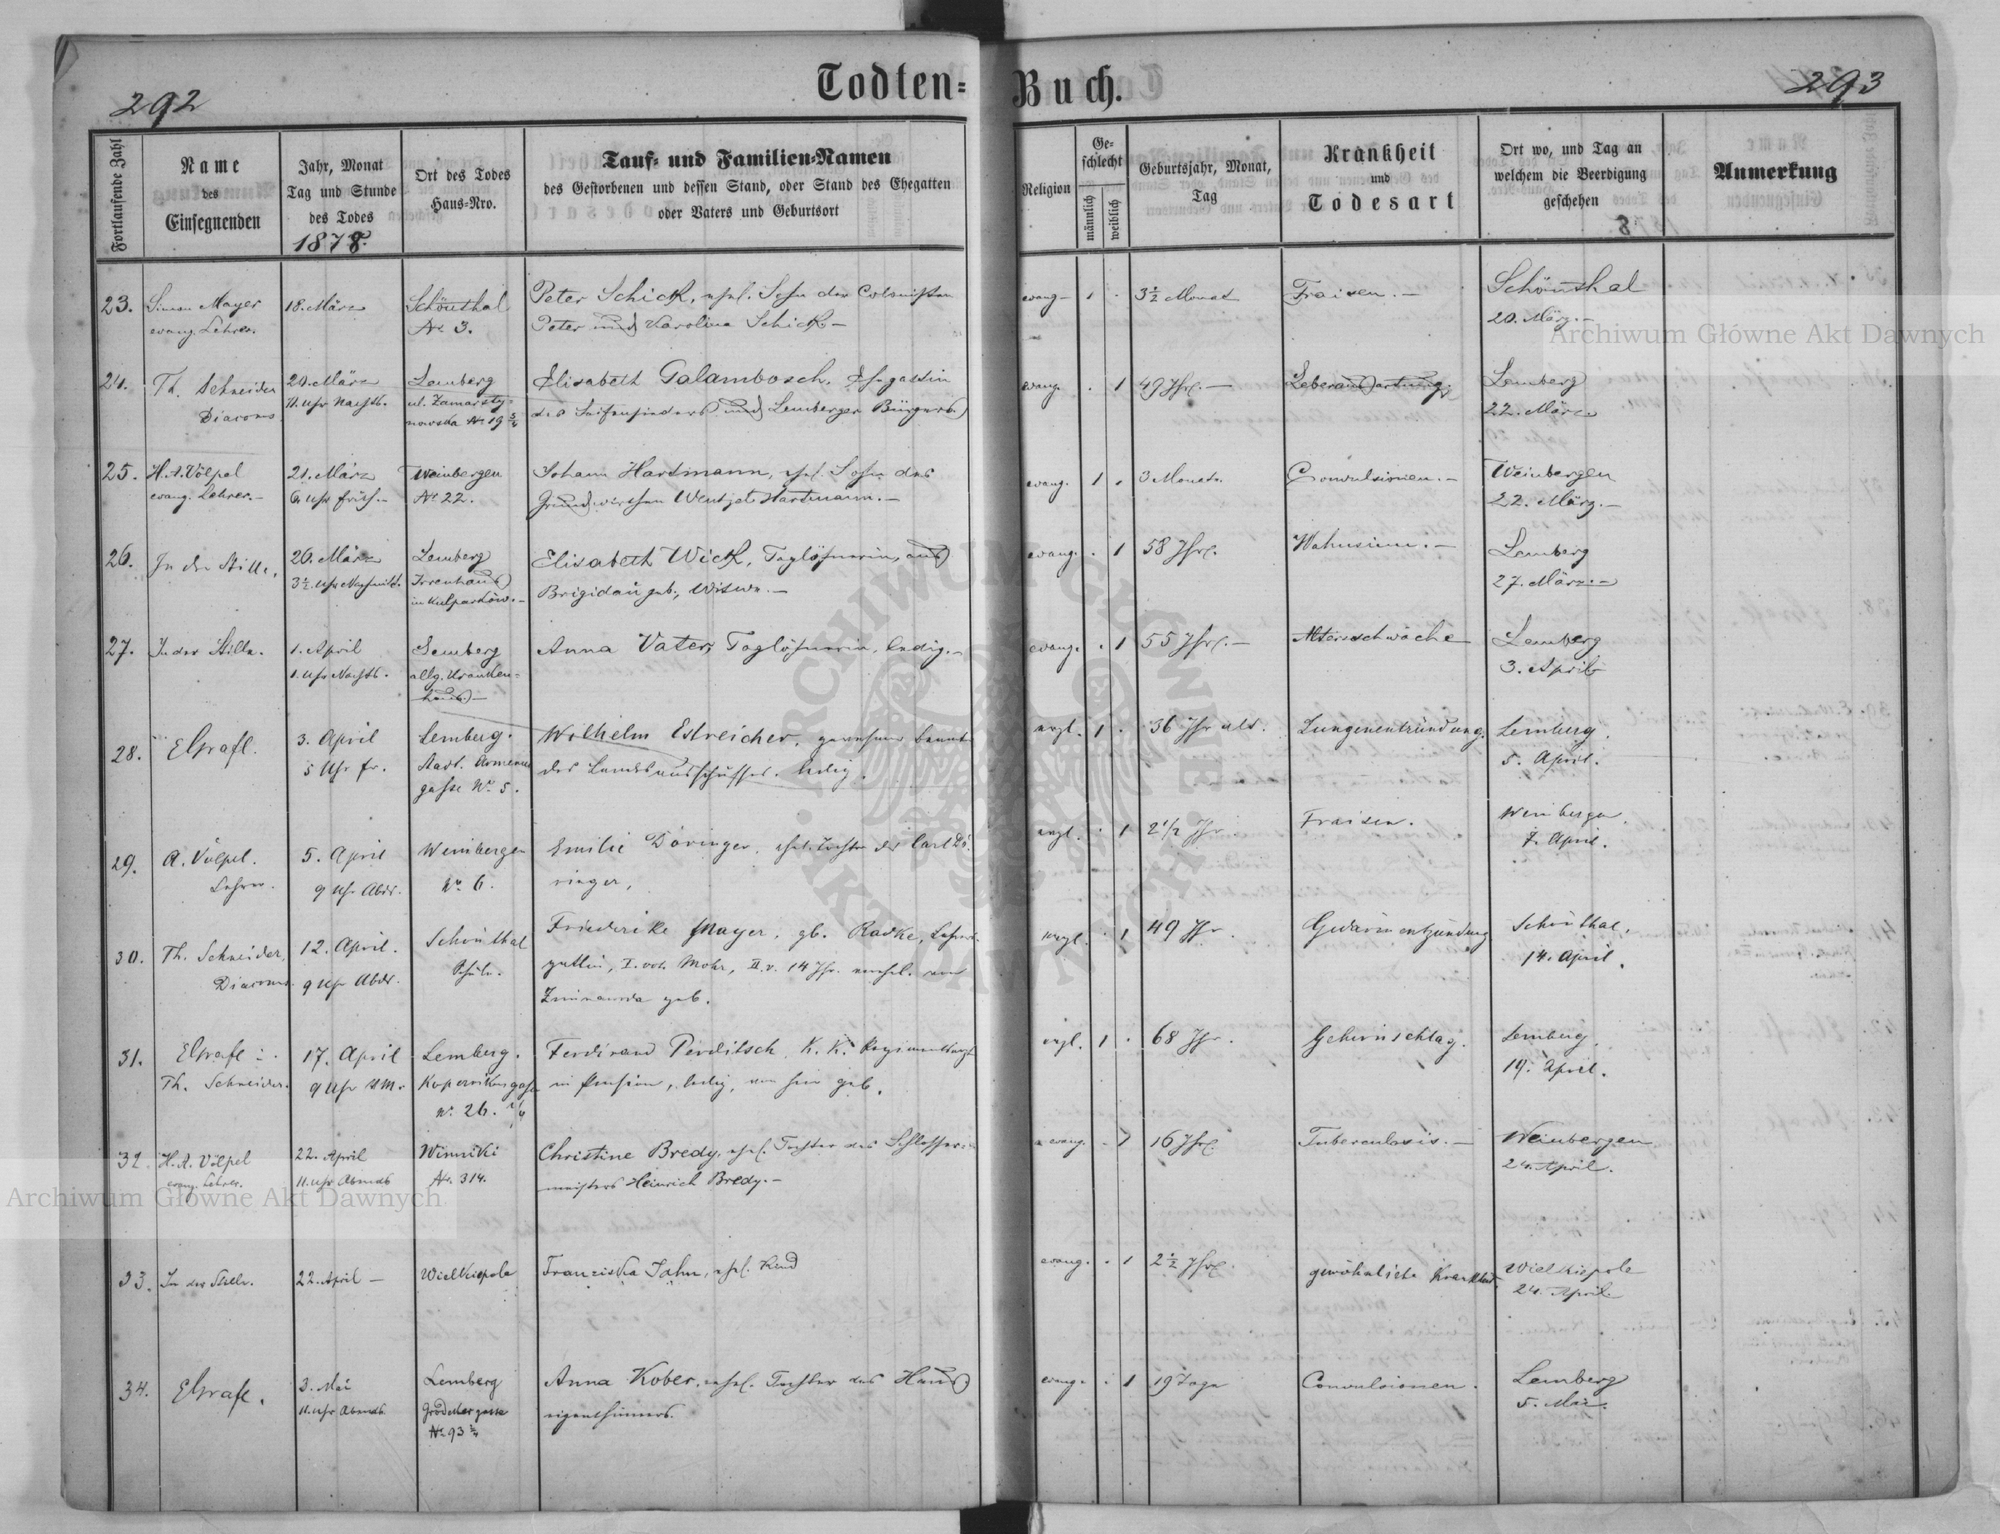 292
Todten-Buch.
293
Fortlaufende Zahl
Name des Einsegnenden
Jahr, Monat Tag und Stunde des Todes 1878.
Ort des Todes Haus-Nro.
Tauf- und Familien-Namen
des Gestorbenen und dessen Stand, oder Stand des Ehegatten
oder Vaters und Geburtsort
Religion
Geschlecht
männlich
weiblich
Geburtsjahr, Monat, Tag
Krankheit und Todesart
Ort wo, und Tag an welchem die Beerdigung geschehen
8
Anmerkung
23. Simon Mayer 18. März Schönthal Peter Schick, ehel. Sohn des Colonisten evang. 1 . 3½ Monat Fraisen.- Schönthal
evang. Lehrer. No 3. Peter und Karolina Schick.- 20. März.-
24. Th. Schneider 20. März Lemberg Elisabeth Galambosch, Ehegattin evang. . 1 49 Jhr.- Leberausartung. Lemberg
Diaconus 11. Uhr Nachts. ul. Zamarsty- des Seifensieders und Lemberger Bürgers 22. März
nowska No 19
25. H. A. Völpel 21. März Weinbergen Johann Hartmann, ehel. Sohn des evang. 1 . 3 Monate. Convulsionen.- Weinbergen
evang. Lehrer.- 6 Uhr früh.- No 22. Grundwirthen Hartmann.- 22. März.-
26. In der Stille. 26. März Lemberg Elisabeth Wick, Taglöhnerin, aus evang. . 1 58 Jhr. Wahnsinn.- Lemberg
3½ Uhr Nachmitt. Irrenhaus Brigidau geb., Witwe.- 27. März.-
in Kulparków.-
27. In der Stille. 1. April Lemberg Anna Vater, Taglöhnerin, ledig.- evang. . 1 55 Jhr.- Altersschwäche Lemberg
1. Uhr Nachts. allg. Kranken- 3. April
haus.-
28. EGrafl. 3. April Lemberg. Wilhelm Estreicher, gewesener Beamte evgl. 1 . 36 Jhr alt. Lungenentzündung. Lemberg.
5 Uhr fr. Stadt. Armenier des Landesausschusses. ledig. 5. April.
gasse No 5.
29. A. Völpel. 5. April Weinbergen Emilie Döringer, ehel. Tochter des Carl Dö- evgl. . 1 2 1/2 Jhr. Fraisen. Weinbergen.
Lehrer. 9 Uhr Abds. No 6. ringer, 7. April.
30. Th. Schneider, 12. April. Schönthal Friederike Mayer, gb. Radke, Lehrers- evgl. . 1 49 Jhr. Gedärmentzündung Schönthal.
Diaconus. 9 Uhr Abds. Schule. gattin, I. vereh. Mohr, II. v. 14 Jhr. verehel. von 14. April.
geb.
31. EGrafl 17. April Lemberg. Ferdinand Perditsch, K. K. Regimentsarzt evgl. 1 . 68 Jhr. Gehirnschlag. Lemberg.
Th. Schneider. 9 Uhr Kopernikusgasse in Pension, ledig, von hier geb. 19. April.
No. 26.
32. H. A. Völpel 22. April Winniki Christine Bredy, ehel. Tochter des Schlosser- evang. . 1 16 Jhr. Tuberculosis.- Weinbergen
evang. Lehrer. 11. Uhr Abends No. 314. meisters Heinrich Bredy.- 24. April.
33. In der Stille. 22. April - Wielkiepole Franciska Jahn, ehel. Kind evang. . 1 2½ Jhr. gewöhnliche Krankheit. Wielkiepole
24. April.
34. EGrafl. 3. Mai Lemberg Anna Kober, ehel. Tochter des Haus evang. . 1 19 Tage Convulsionen. Lemberg
11. Uhr Abends Grodeker gasse eigenthümers. 5. Mai.
No 93
Archiwum Główne Akt Dawnych
Archiwum Główne Akt Dawnych
ARCHIWUM GŁÓWNE AKT DAWNYCH